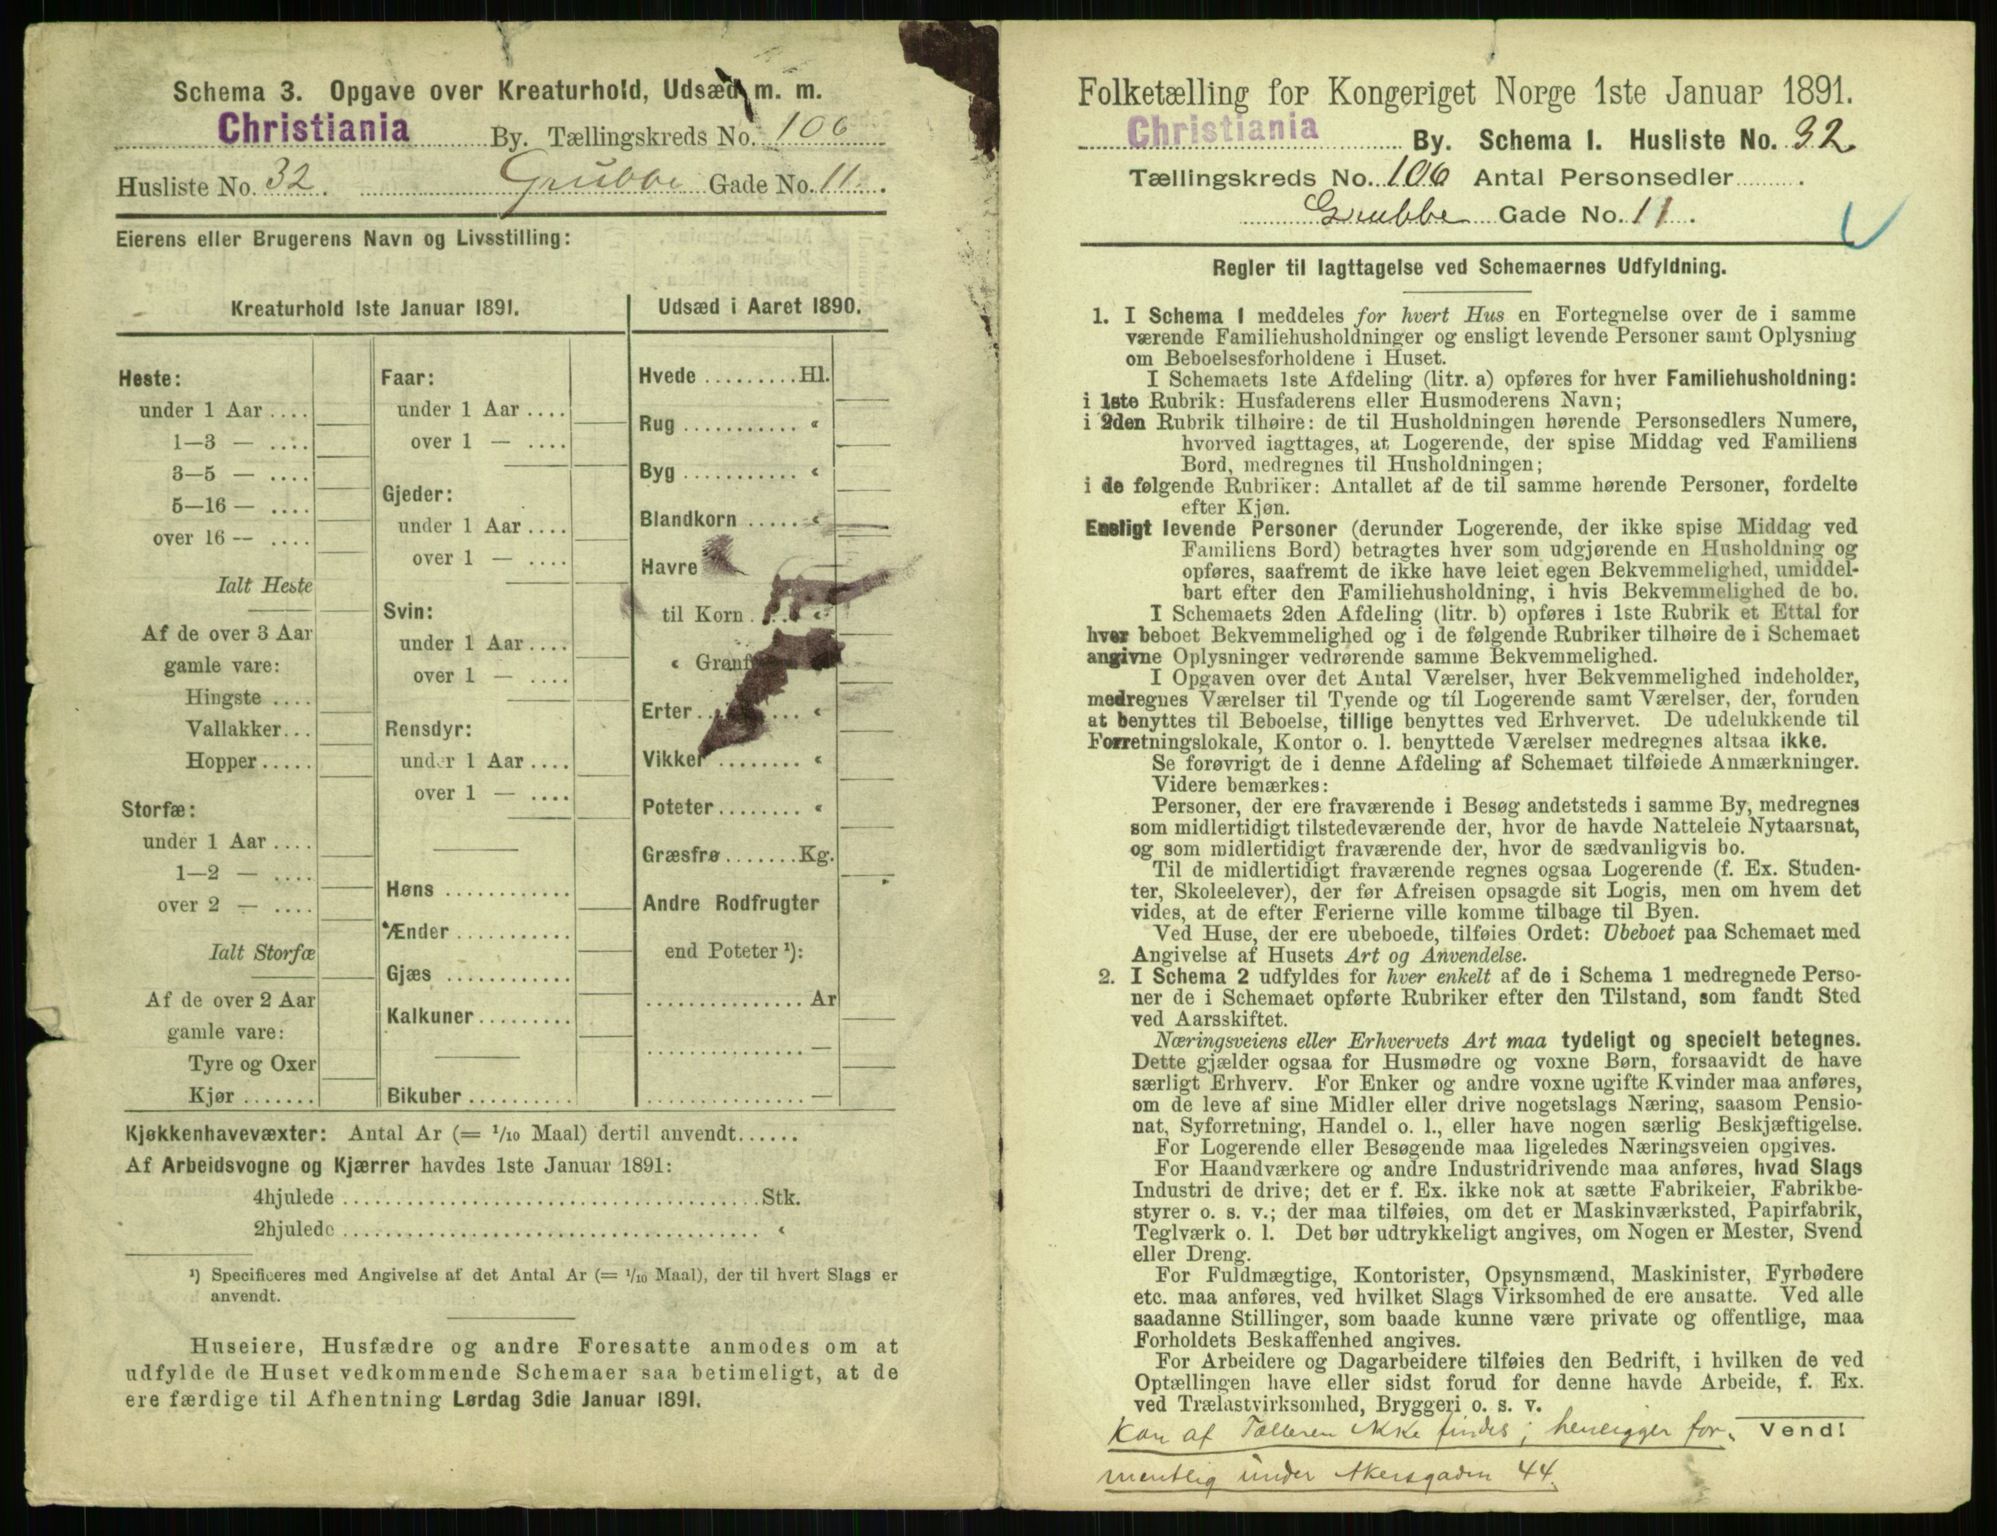 Schema 3. Opgave over Kreaturhold, Udsæd m. m.
Christiania By. Tællingskreds No. 106
Husliste No. 32. Grubbe Gade No. 11.
Eierens eller Brugerens Navn og Livsstilling:
Kreaturhold 1ste Januar 1891.
Heste:
under 1 Aar ....
1—3 — ....
3—5 — ....
5—16 — ....
over 16 — ....
Ialt Heste
Af de over 3 Aar
gamle vare:
Hingste ....
Vallakker...
Hopper .....
Storfæ:
under 1 Aar ....
1—2 — ....
over 2 — ....
Ialt Storfæ
Af de over 2 Aar
gamle vare:
Tyre og Oxer
Kjør .......
Faar:
under 1 Aar ....
over 1 — ....
Gjeder:
under 1 Aar ....
over 1 — ....
Svin:
under 1 Aar ....
over 1 — ....
Rensdyr:
under 1 Aar ....
over 1 — ....
Høns ...........
Ænder ...........
Gjæs ...........
Kalkuner.........
Bikuber ..........
Udsæd i Aaret 1890.
Hvede .........Hl.
Rug ........... «
Byg ........... «
Blandkorn ...... «
Havre
til Korn .... «
« Grønf
Erter .......... «
Vikker ........ «
Poteter ........ «
Græsfrø .......Kg.
Andre Rodfrugter
end Poteter ¹):
............... Ar
............... —
............... —
Kjøkkenhavevæxter: Antal Ar (= 1/10 Maal) dertil anvendt......
Af Arbeidsvogne og Kjærrer havdes 1ste Januar 1891:
4hjulede ....................................... Stk.
2hjulede ....................................... «
¹) Specificeres med Angivelse af det Antal Ar (= 1/10 Maal), der til hvert Slags er
anvendt.
Huseiere, Husfædre og andre Foresatte anmodes om at
udfylde de Huset vedkommende Schemaer saa betimeligt, at de
ere færdige til Afhentning Lørdag 3die Januar 1891.
Folketælling for Kongeriget Norge 1ste Januar 1891.
Christiania By. Schema I. Husliste No. 32
Tællingskreds No. 106 Antal Personsedler .......... .
Grubbe Gade No. 11.
Regler til Iagttagelse ved Schemaernes Udfyldning.
1. I Schema 1 meddeles for hvert Hus en Fortegnelse over de i samme
værende Familiehusholdninger og ensligt levende Personer samt Oplysning
om Beboelsesforholdene i Huset.
I Schemaets 1ste Afdeling (litr. a) opføres for hver Familiehusholdning:
i 1ste Rubrik: Husfaderens eller Husmoderens Navn;
i 2den Rubrik tilhøire: de til Husholdningen hørende Personsedlers Numere,
hvorved iagttages, at Logerende, der spise Middag ved Familiens
Bord, medregnes til Husholdningen;
i de følgende Rubriker: Antallet af de til samme hørende Personer, fordelte
efter Kjøn.
Ensligt levende Personer (derunder Logerende, der ikke spise Middag ved
Familiens Bord) betragtes hver som udgjørende en Husholdning og
opføres, saafremt de ikke have leiet egen Bekvemmelighed, umiddel-
bart efter den Familiehusholdning, i hvis Bekvemmelighed de bo.
I Schemaets 2den Afdeling (litr. b) opføres i 1ste Rubrik et Ettal for
hver beboet Bekvemmelighed og i de følgende Rubriker tilhøire de i Schemaet
angivne Oplysninger vedrørende samme Bekvemmelighed.
I Opgaven over det Antal Værelser, hver Bekvemmelighed indeholder,
medregnes Værelser til Tyende og til Logerende samt Værelser, der, foruden
at benyttes til Beboelse, tillige benyttes ved Erhvervet. De udelukkende til
Forretningslokale, Kontor o. l. benyttede Værelser medregnes altsaa ikke.
Se forøvrigt de i denne Afdeling af Schemaet tilføiede Anmærkninger.
Videre bemærkes:
Personer, der ere fraværende i Besøg andetsteds i samme By, medregnes
som midlertidigt tilstedeværende der, hvor de havde Natteleie Nytaarsnat,
og som midlertidigt fraværende der, hvor de sædvanligvis bo.
Til de midlertidigt fraværende regnes ogsaa Logerende (f. Ex. Studen-
ter, Skoleelever), der før Afreisen opsagde sit Logis, men om hvem det
vides, at de efter Ferierne ville komme tilbage til Byen.
Ved Huse, der ere ubeboede, tilføies Ordet: Ubeboet paa Schemaet med
Angivelse af Husets Art og Anvendelse.
2. I Schema 2 udfyldes for hver enkelt af de i Schema 1 medregnede Perso-
ner de i Schemaet opførte Rubriker efter den Tilstand, som fandt Sted
ved Aarsskiftet.
Næringsveiens eller Erhvervets Art maa tydeligt og specielt betegnes.
Dette gjælder ogsaa for Husmødre og voxne Børn, forsaavidt de have
særligt Erhverv. For Enker og andre voxne ugifte Kvinder maa anføres,
om de leve af sine Midler eller drive nogetslags Næring, saasom Pensio-
nat, Syforretning, Handel o. l., eller have nogen særlig Beskjæftigelse.
For Logerende eller Besøgende maa ligeledes Næringsveien opgives.
For Haandværkere og andre Industridrivende maa anføres, hvad Slags
Industri de drive; det er f. Ex. ikke nok at sætte Fabrikeier, Fabrikbe-
styrer o. s. v.; der maa tilføies, om det er Maskinværksted, Papirfabrik,
Teglværk o. l. Det bør udtrykkeligt angives, om Nogen er Mester, Svend
eller Dreng.
For Fuldmægtige, Kontorister, Opsynsmænd, Maskinister, Fyrbødere
etc. maa anføres, ved hvilket Slags Virksomhed de ere ansatte. Ved alle
saadanne Stillinger, som baade kunne være private og offentlige, maa
Forholdets Beskaffenhed angives.
For Arbeidere og Dagarbeidere tilføies den Bedrift, i hvilken de ved
Optællingen have eller sidst forud for denne havde Arbeide, f. Ex.
ved Trælastvirksomhed, Bryggeri o. s. v.
Kan af Tælleren ikke findes; henligger for- Vend!
mentlig under Akersgaden 44.